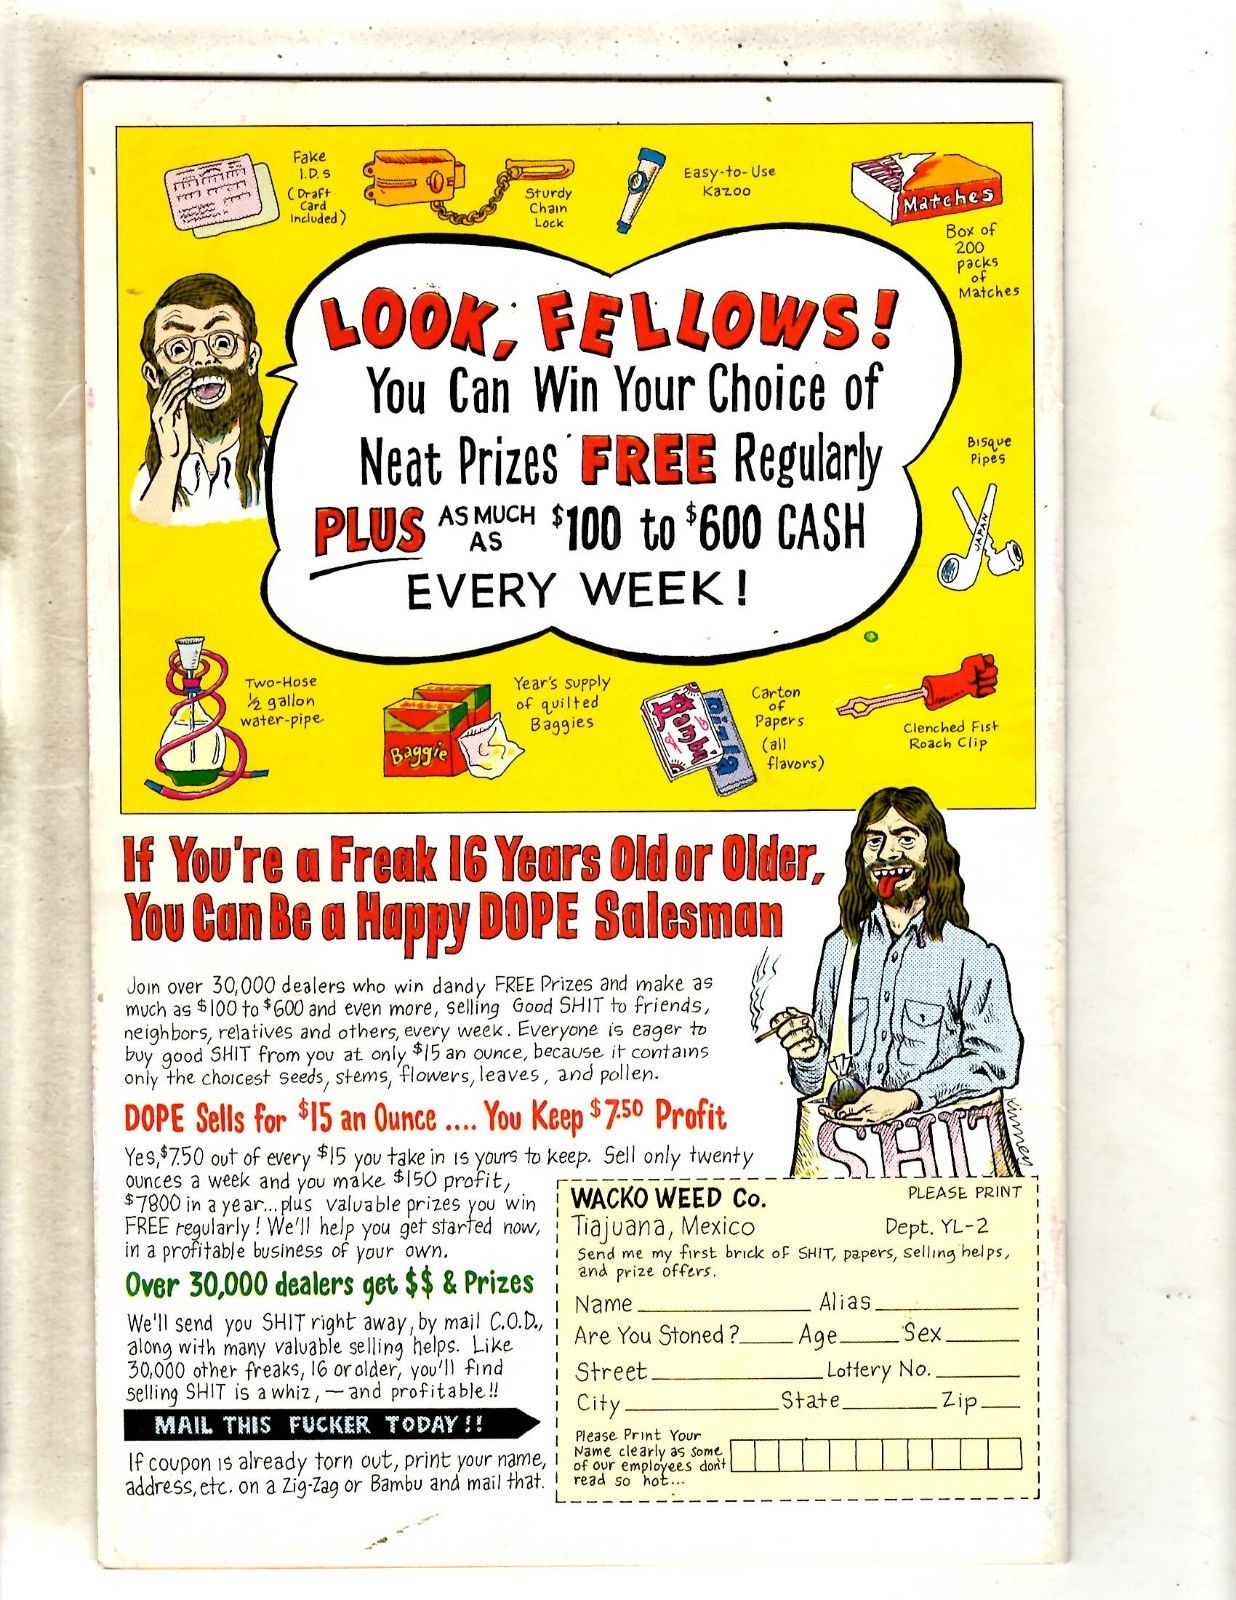 Fake
I.D.s
(Draft
Card
Included)
Sturdy
Chain
Lock
Easy-to-Use
Kazoo
Matches
Box of
200
packs
of
Matches
LOOK, FELLOWS!
You Can Win Your Choice of
Neat Prizes FREE Regularly
PLUS AS MUCH AS $100 to $600 CASH
EVERY WEEK!
Bisque
Pipes
JAPAN
Two-Hose
½ gallon
water-pipe
Baggie
Year's supply
of quilted
Baggies
Bambu
Carton
of
Papers
(all
flavors)
Clenched Fist
Roach Clip
If You're a Freak 16 Years Old or Older,
You Can Be a Happy DOPE Salesman
Join over 30,000 dealers who win dandy FREE Prizes and make as
much as $100 to $600 and even more, selling Good SHIT to friends,
neighbors, relatives and others, every week. Everyone is eager to
buy good SHIT from you at only $15 an ounce, because it contains
only the choicest seeds, stems, flowers, leaves, and pollen.
DOPE Sells for $15 an Ounce .... You Keep $7.50 Profit
Yes, $7.50 out of every $15 you take in is yours to keep. Sell only twenty
ounces a week and you make $150 profit,
$7800 in a year...plus valuable prizes you win
FREE regularly! We'll help you get started now,
in a profitable business of your own.
Over 30,000 dealers get $$ & Prizes
We'll send you SHIT right away, by mail C.O.D.,
along with many valuable selling helps. Like
30,000 other freaks, 16 or older, you'll find
selling SHIT is a whiz, — and profitable!!
MAIL THIS FUCKER TODAY!!
If coupon is already torn out, print your name,
address, etc. on a Zig-Zag or Bambu and mail that.
SHIT
Kinney
WACKO WEED Co. PLEASE PRINT
Tiajuana, Mexico Dept. YL-2
Send me my first brick of SHIT, papers, selling helps,
and prize offers.
Name Alias
Are You Stoned? Age Sex
Street Lottery No.
City State Zip
Please Print Your
Name clearly as some
of our employees don't
read so hot...